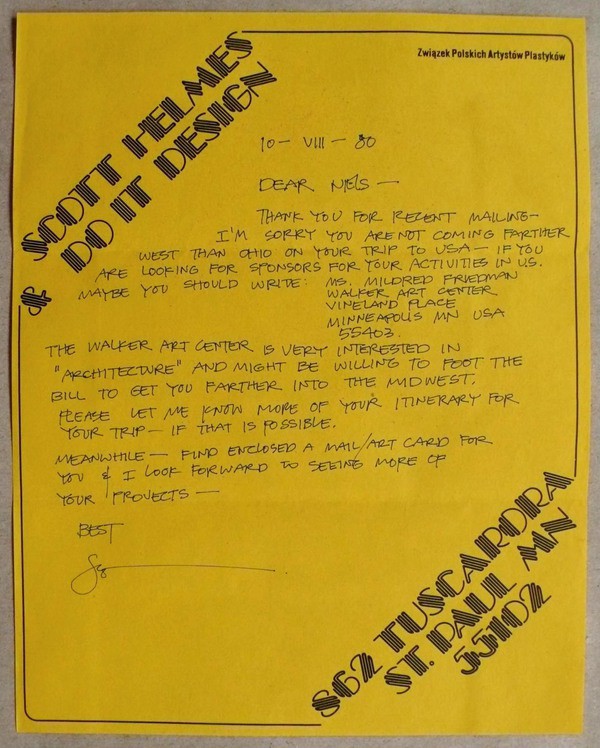 Związek Polskich Artystów Plastyków
SCOTT HELMES
& DO IT DESIGN
10 - VIII - 80
DEAR NIELS —
THANK YOU FOR RECENT MAILING -
I'M SORRY YOU ARE NOT COMING FARTHER
WEST THAN OHIO ON YOUR TRIP TO USA - IF YOU
ARE LOOKING FOR SPONSORS FOR YOUR ACTIVITIES IN U.S.
MAYBE YOU SHOULD WRITE: MS. MILDRED FRIEDMAN
WALKER ART CENTER
VINELAND PLACE
MINNEAPOLIS MN USA
55403.
THE WALKER ART CENTER IS VERY INTERESTED IN
"ARCHITECTURE" AND MIGHT BE WILLING TO FOOT THE
BILL TO GET YOU FARTHER INTO THE MIDWEST.
PLEASE LET ME KNOW MORE OF YOUR ITINERARY FOR
YOUR TRIP - IF THAT IS POSSIBLE.
MEANWHILE - FIND ENCLOSED A MAIL/ART CARD FOR
YOU & I LOOK FORWARD TO SEEING MORE OF
YOUR PROJECTS —
BEST
862 TUSCARORA
ST. PAUL MN
55102